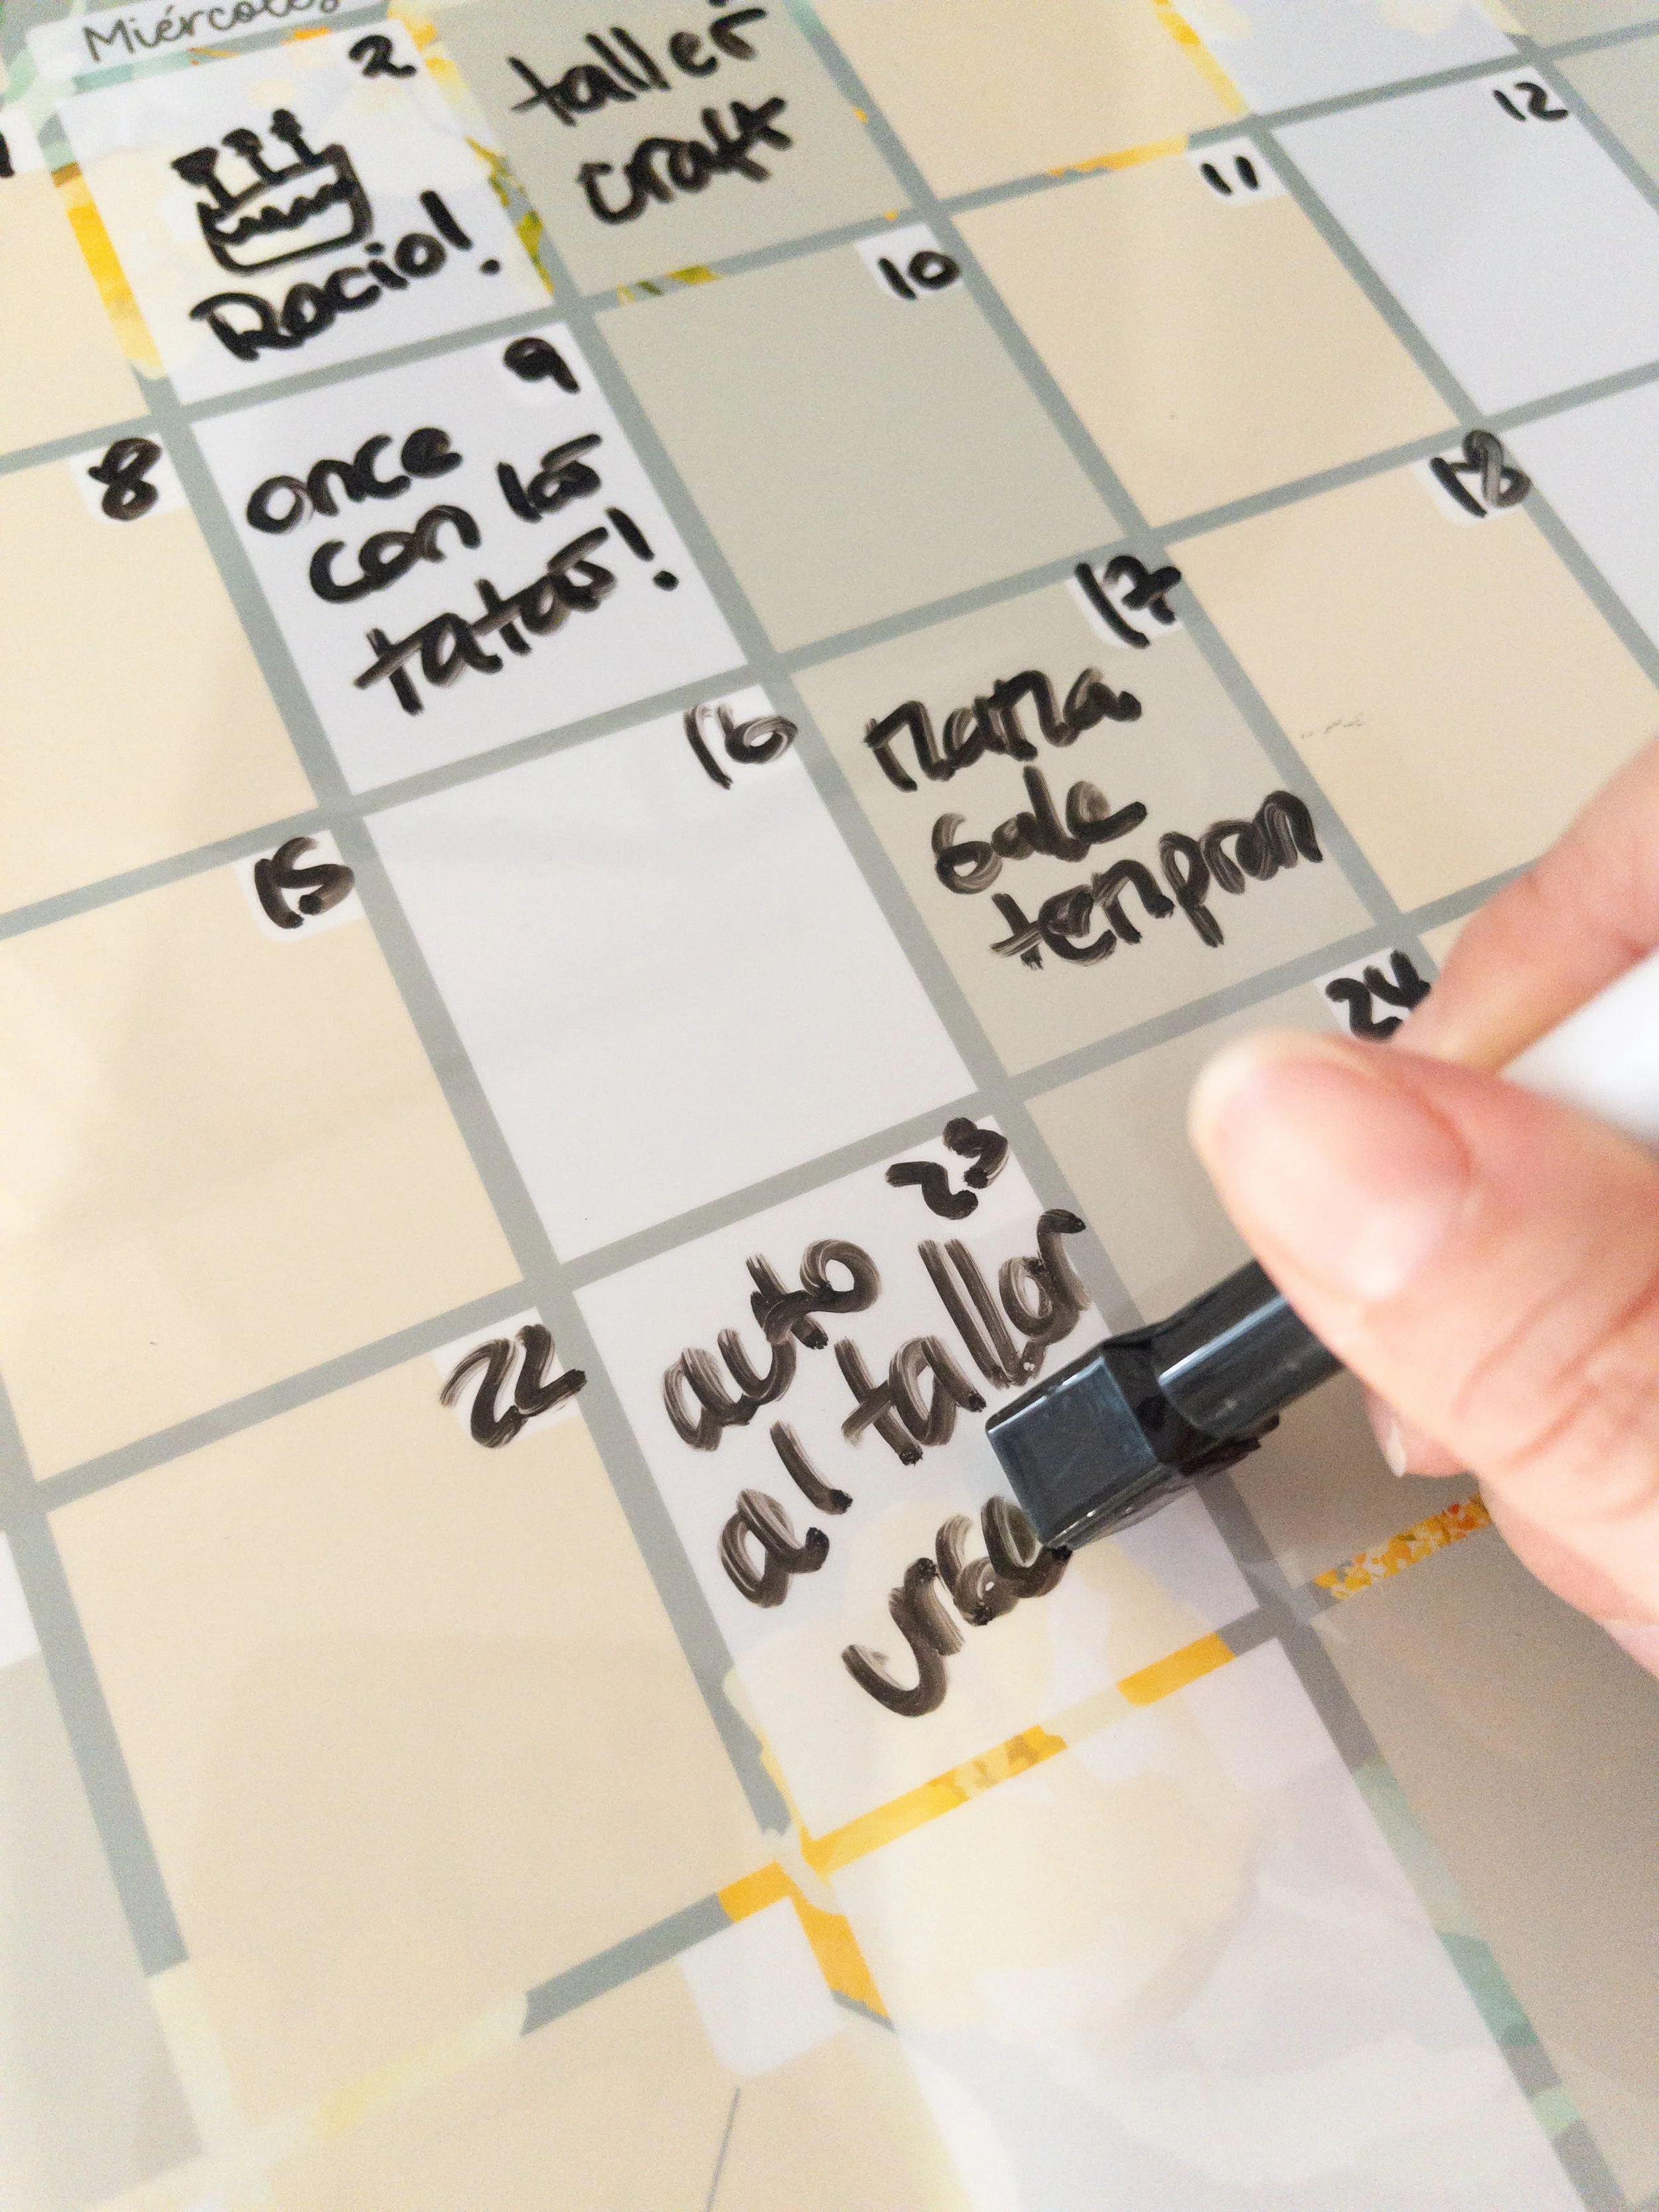 Miércoles
2
Rocio!
taller
craft
8
9
once
con las
tatas!
10
11
12
15
16
17
mama
sale
tempran
18
22
23
auto
al taller
24